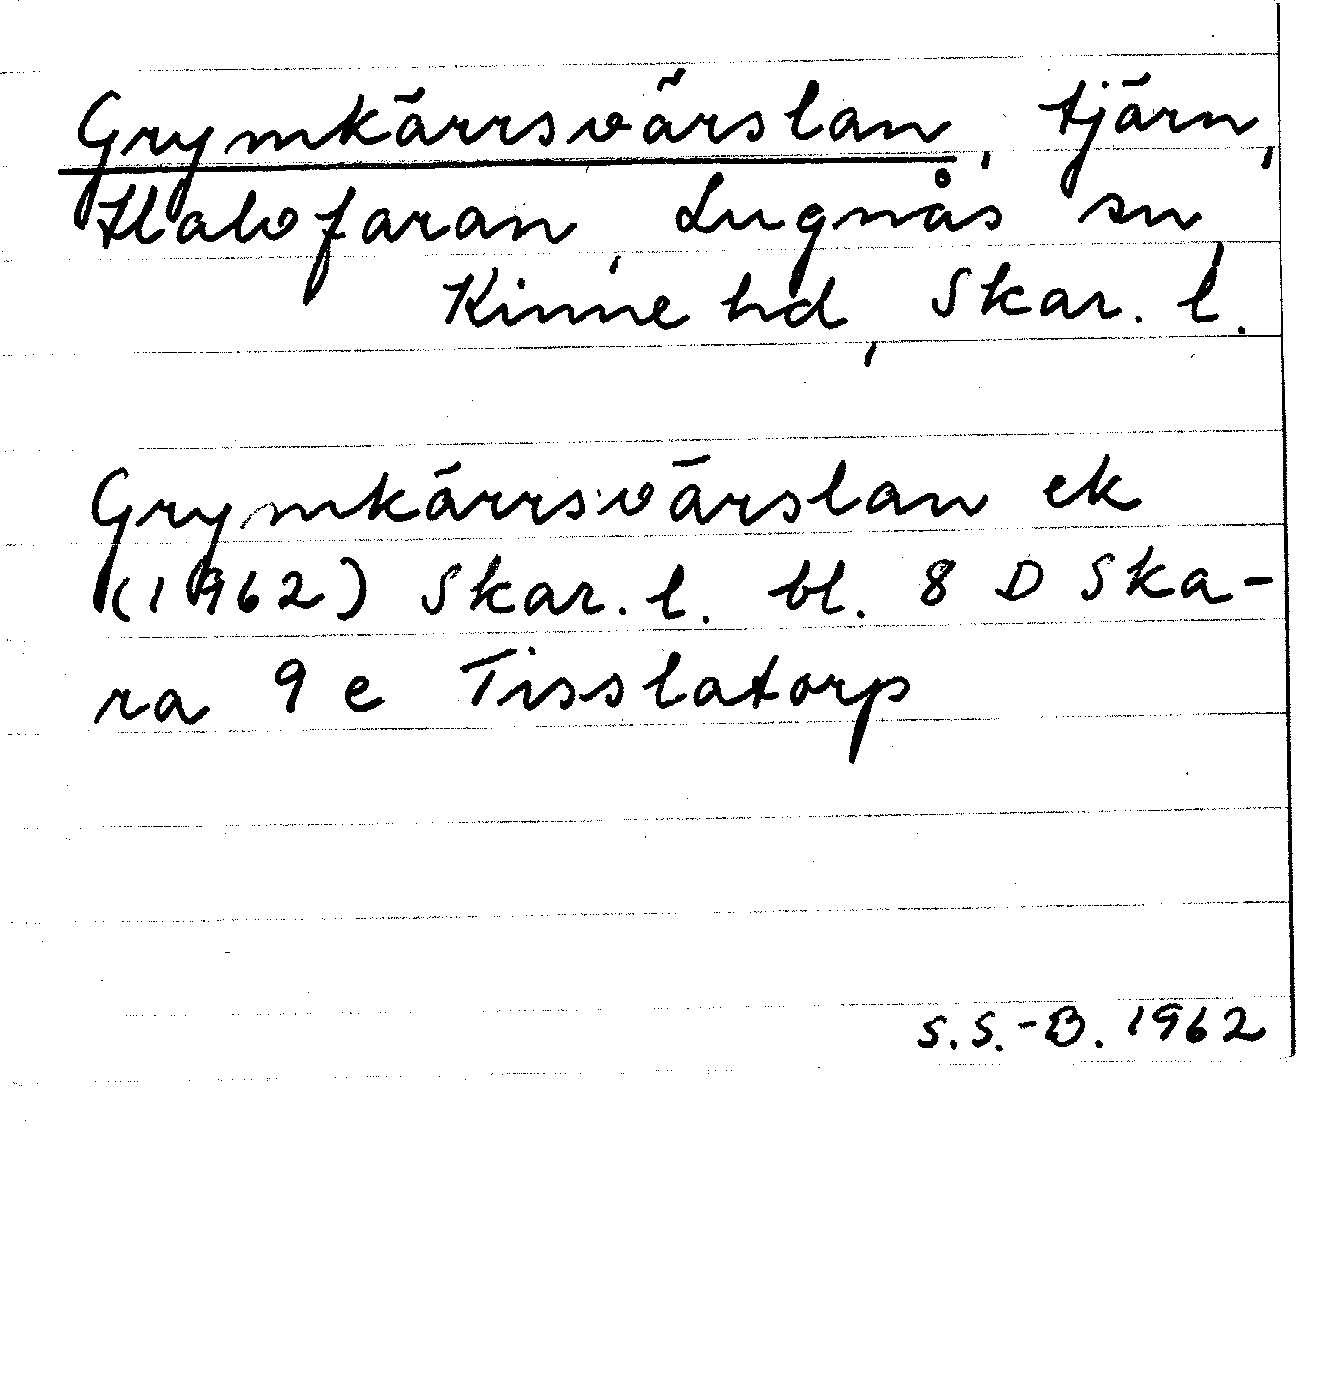 Grymkärrsvärslan, tjärn,
Halvfaran, Lugnås sn,
Kinne hd, Skar. l.
Grymkärrsvärslan ek
(1962) Skar. l. bl. 8 D Ska-
ra 9 e Tisslatorp
S.S.-B. 1962